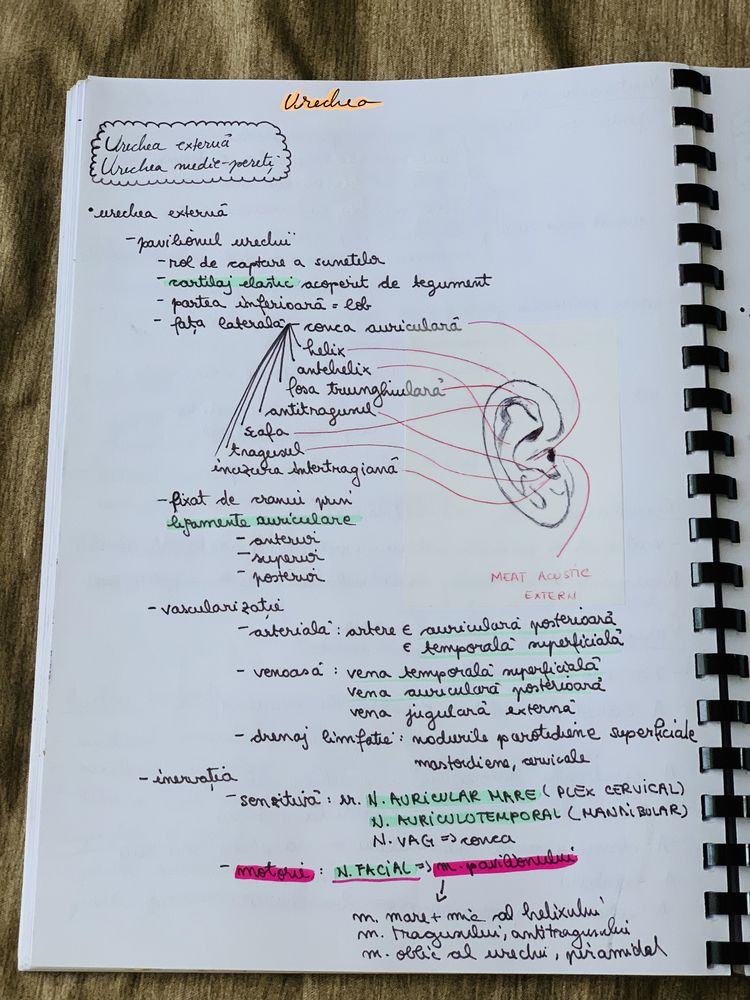 Urechea
Urechea externă
Urechea medie-pereți
• urechea externă
- pavilionul urechii
- rol de captare a sunetelor
- cartilaj elastic acoperit de tegument
- partea inferioară = lob
- fața laterală - conca auriculară
helix
antehelix
fosa triunghiulară
antitragusul
scafa
tragusul
incizura intertragiană
- fixat de craniu prin
ligamente auriculare
- anterior
- superior
- posterior
MEAT ACUSTIC
EXTERN
- vascularizație
- arterială : artere ∈ auriculară posterioară
∈ temporală superficială
- venoasă : vena temporală superficială
vena auriculară posterioară
vena jugulară externă
- drenaj limfatic : nodurile parotidiene superficiale
mastoidiene, cervicale
- inervația
- senzitivă : nr. N. AURICULAR MARE (PLEX CERVICAL)
N. AURICULOTEMPORAL (MANDIBULAR)
N. VAG => conca
- motorie : N. FACIAL => m. pavilionului
m. mare + mic al helixului
m. tragusului, antitragusului
m. oblic al urechii, piramidal